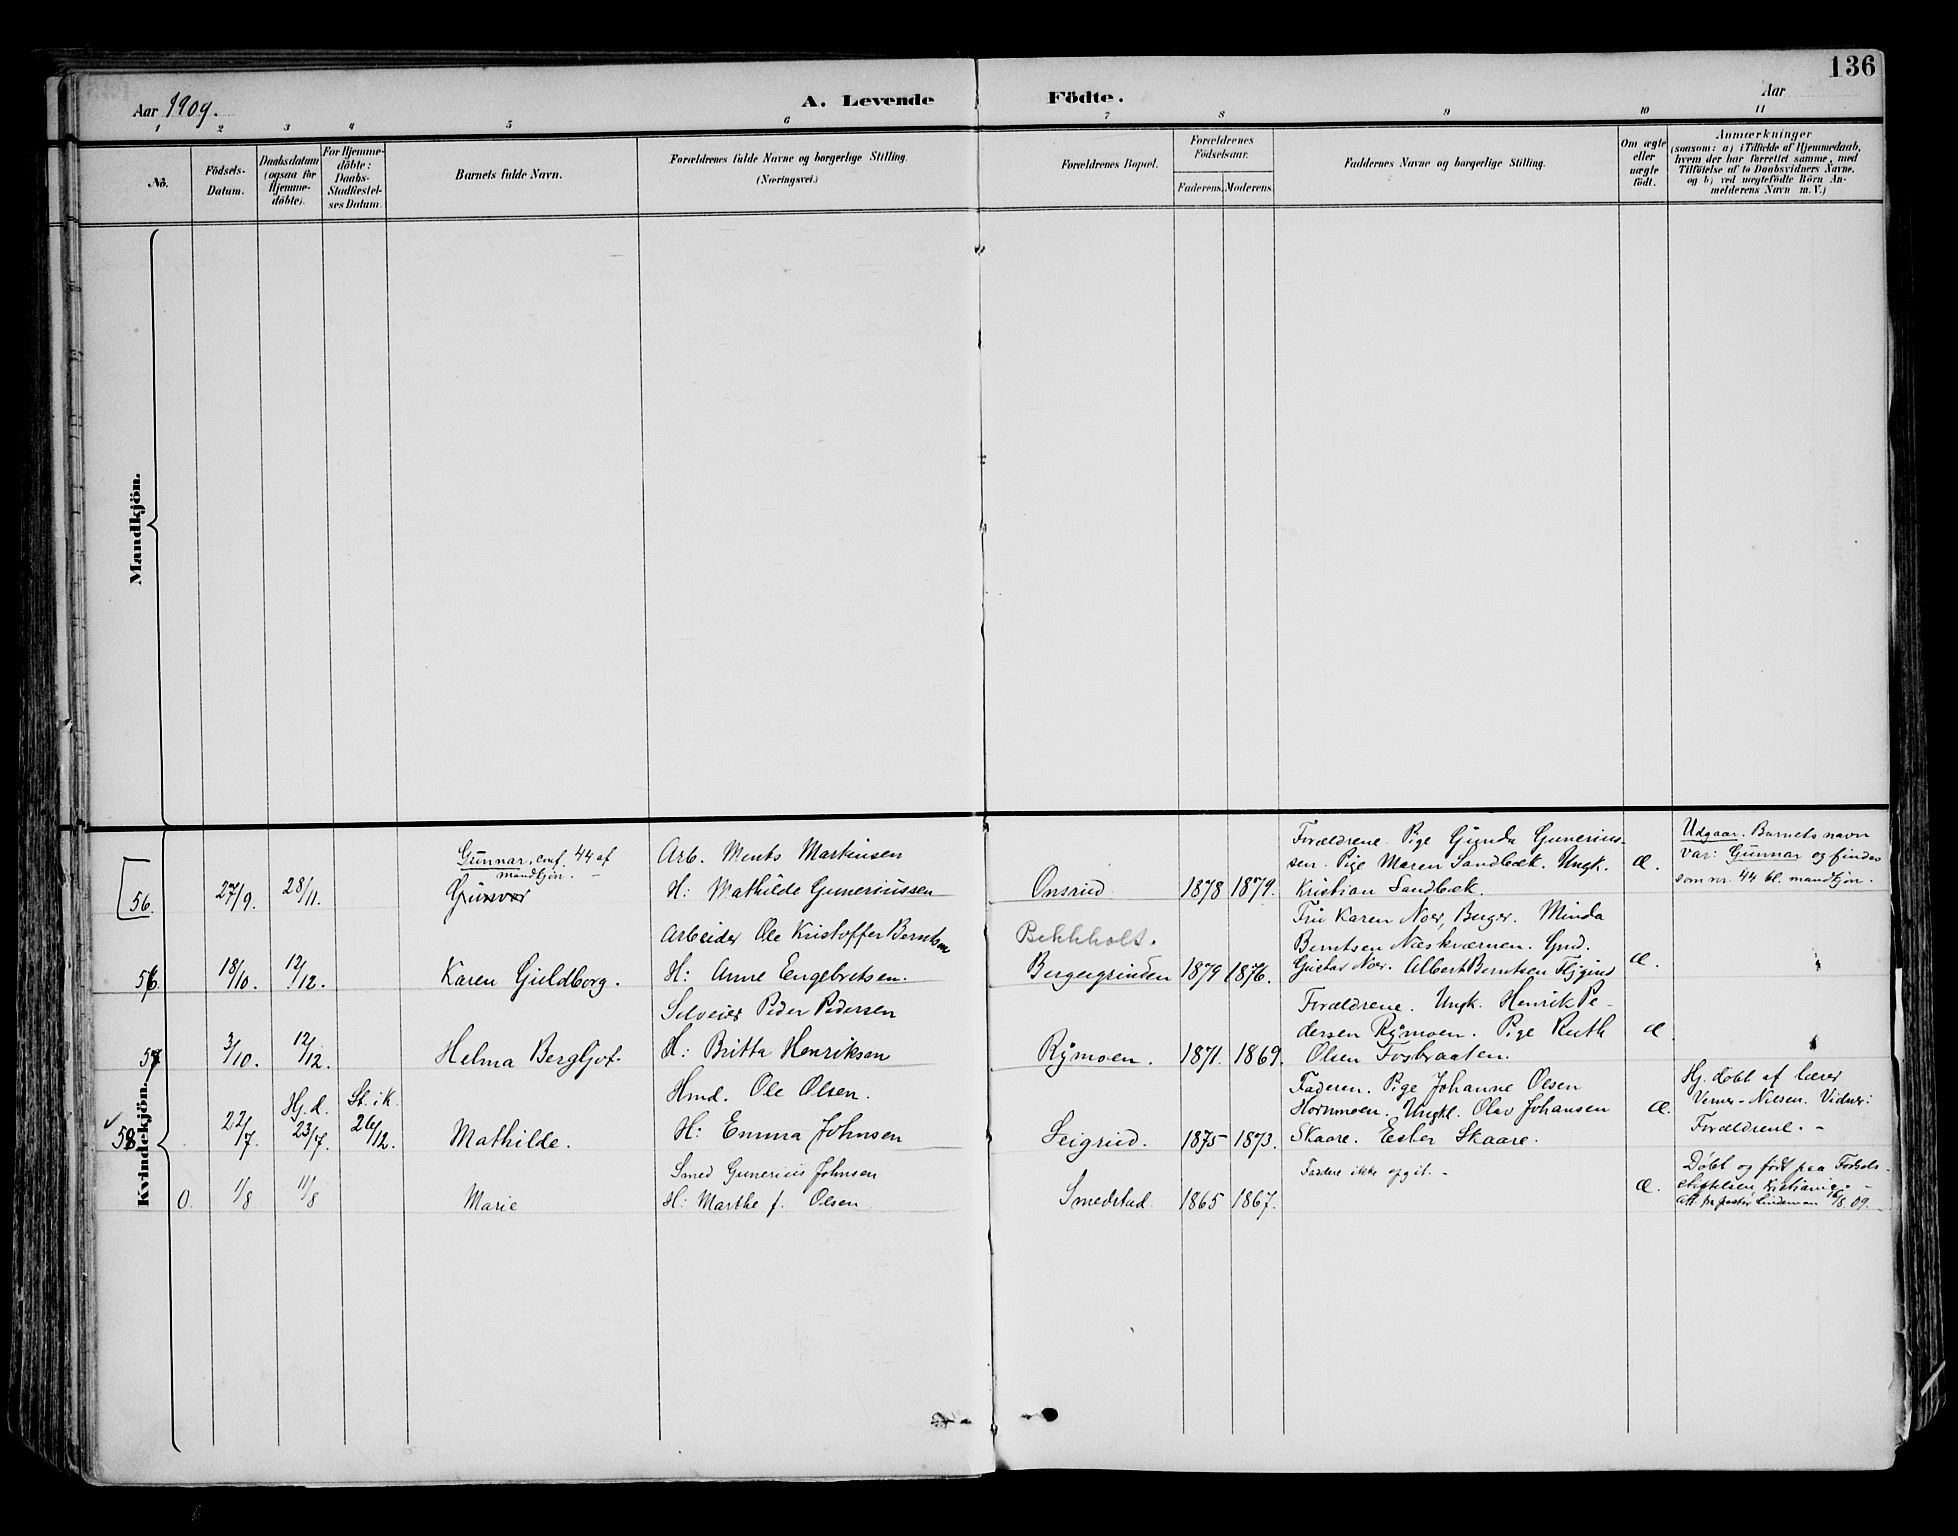 136
Aar 1909.
A. Levende Födte.
Aar
1 2 3 4 5 6 7 8 9 10 11
Nö.
Födsels-Datum.
Daabsdatum (ogsaa for Hjemme-döbte).
For Hjemme-döbte: Daabs-Stadfæstel-ses Datum.
Barnets fulde Navn.
Forældrenes fulde Navne og borgerlige Stilling. (Næringsvei.)
Forældrenes Bopæl.
Forældrenes Födselsaar.
Faderens. Moderens.
Faddernes Navne og borgerlige Stilling.
Om ægte eller uægte födt.
Anmærkninger
(saasom: a) i Tilfælde af Hjemmedaab,
hvem der har forrettet samme, med
Tilföielse af to Daabsvidners Navne.
og b) ved uægtefödte Börn An-
melderens Navn m. V.)
Mandkjön.
Kvindekjön.
56.
27/9.
28/11.
Gunnar, conf. 44 af
mandkjøn. -
Gunvor
Arb. Ments Martinsen
H: Mathilde Guneriussen
Onsrud.
1878
1879.
Forældrene. Pige Gunda Gunerius-
sen. Pige Maren Sandbæk. Ungk.
Kristian Sandbæk.
Æ.
Udgaar. Barnets navn
var: Gunnar og findes
som nr. 44 bl. mandkjøn.
56.
18/10.
12/12.
Karen Guldborg.
Arbeider Ole Kristoffer Berntsen
H: Anne Engebretsen.
Bekkholt.
Bergergrinden
1879
1876.
Fru Karen Noer, Berger. Minda
Berntsen Næskværnen. Grd.
Gustav Noer. Albert Berntsen
Æ.
57
3/10.
12/12.
Helma Bergljot.
Selveier Peder Pedersen
H: Britta Henriksen
Rymoen.
1871.
1869.
Forældrene. Ungk. Henrik Pe-
dersen Rymoen. Pige Ruth
Olsen Fosbraaten.
Æ
58
22/7.
Hj. d.
23/7.
St. i k.
26/12.
Mathilde.
Hmd. Ole Olsen.
H: Emma Johnsen
Seigrud.
1875
1873.
Faderen. Pige Johanne Olsen
Hornmoen. Ungkl. Olav Johansen
Skaare. Ester Skaare.
Æ.
Hj. døbt af lærer
Verner-Nilsen. Vidner:
Forældrene. -
0.
1/8
11/8
Marie
Smed Gunerius Johnsen
H: Marthe f. Olsen
Smedstad.
1865
1867.
Faddere ikke opgit. -
Æ.
Døbt og født paa Fødsels-
stiftelsen Kristiania -
att. fra pastor Lindeman 16/8 09.